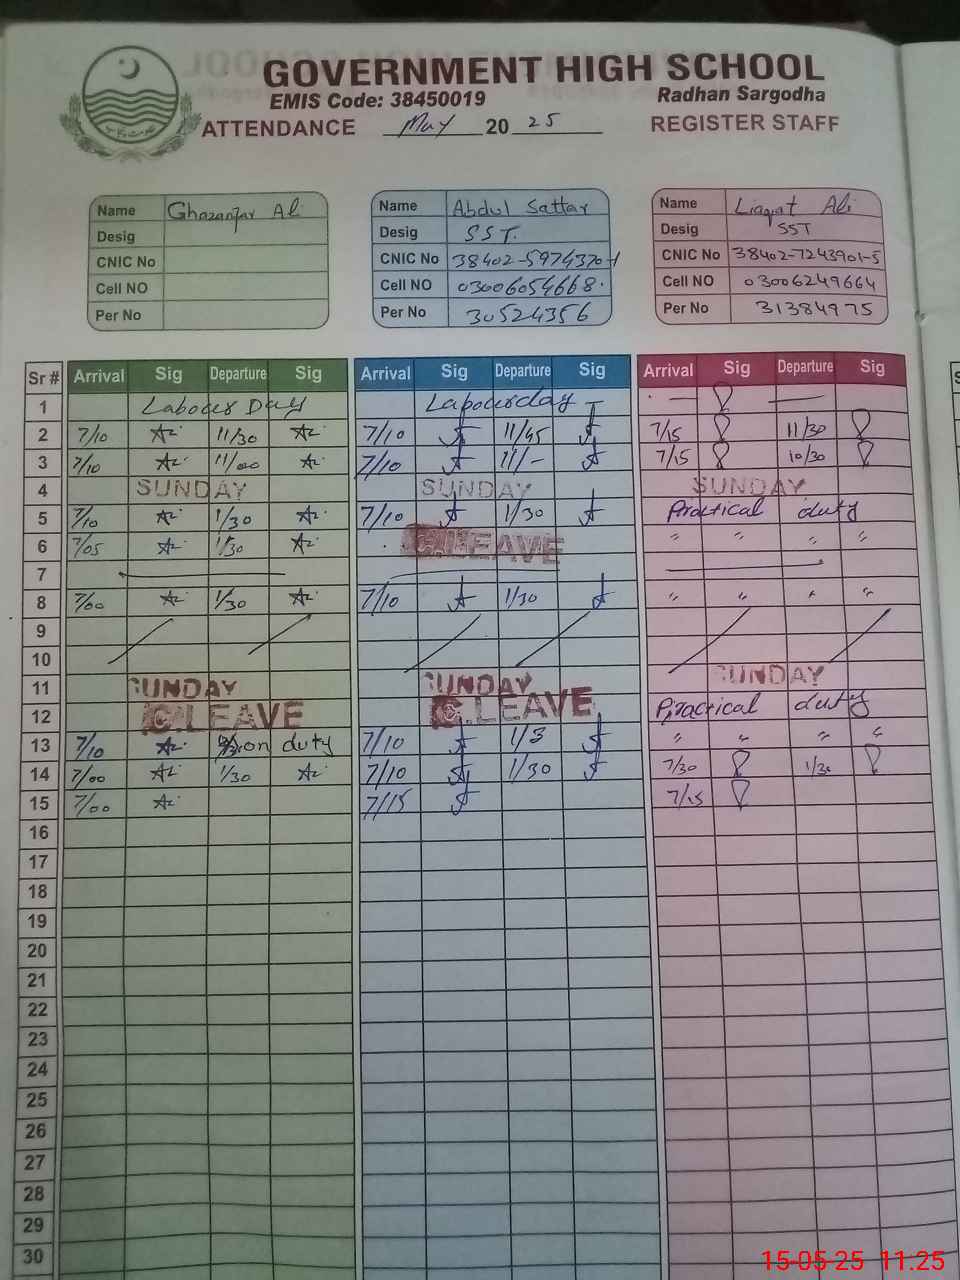 GOVERNMENT HIGH SCHOOL
EMIS Code: 38450019 Radhan Sargodha
ATTENDANCE May 20 25 REGISTER STAFF
Name Ghazanfar Ali
Desig
CNIC No
Cell NO
Per No
Name Abdul Sattar
Desig SST.
CNIC No 38402-5974370-1
Cell NO 03006054668.
Per No 30524356
Name Liaqat Ali
Desig SST
CNIC No 38402-7243901-5
Cell NO 03006249664
Per No 31384975
Sr # Arrival Sig Departure Sig Arrival Sig Departure Sig Arrival Sig Departure Sig
1 Labour Day Labourday
2 7/10 11/30 7/10 11/45 7/15 11/30
3 7/10 11/00 7/10 11/- 7/15 10/30
4 SUNDAY SUNDAY SUNDAY
5 7/10 1/30 7/10 1/30 Practical duty
6 7/05 1/30 C.LEAVE " " " "
7
8 7/00 1/30 7/10 1/30 " " " "
9
10
11 SUNDAY SUNDAY SUNDAY
12 C.LEAVE C.LEAVE Practical duty
13 7/10 on duty 7/10 1/3 " " " "
14 7/00 1/30 7/10 1/30 7/30 1/30
15 7/00 7/15 7/15
16
17
18
19
20
21
22
23
24
25
26
27
28
29
30
15-05-25 11.25